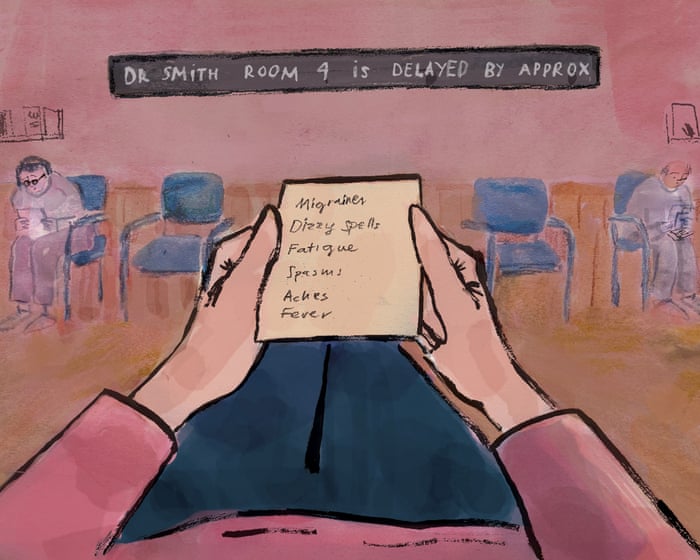 DR SMITH ROOM 4 is DELAYED BY APPROX
Migraines
Dizzy Spells
Fatigue
Spasms
Aches
Fever